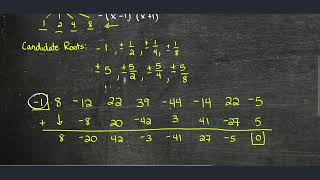 1 2 4 8 ← -(x-1)(x+1)
Candidate Roots: -1, ±1/2, ±1/4, ±1/8
±5, ±5/2, ±5/4, ±5/8
-1 8 -12 22 39 -44 -14 22 -5
+ ↓ -8 20 -42 3 41 -27 5
8 -20 42 -3 -41 27 -5 0